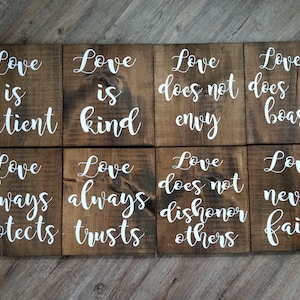 Love
is
tient
Love
is
kind
Love
does not
envy
Love
does
boas
Love
ways
tects
Love
always
trusts
Love
does not
dishonor
others
Love
nev
fai